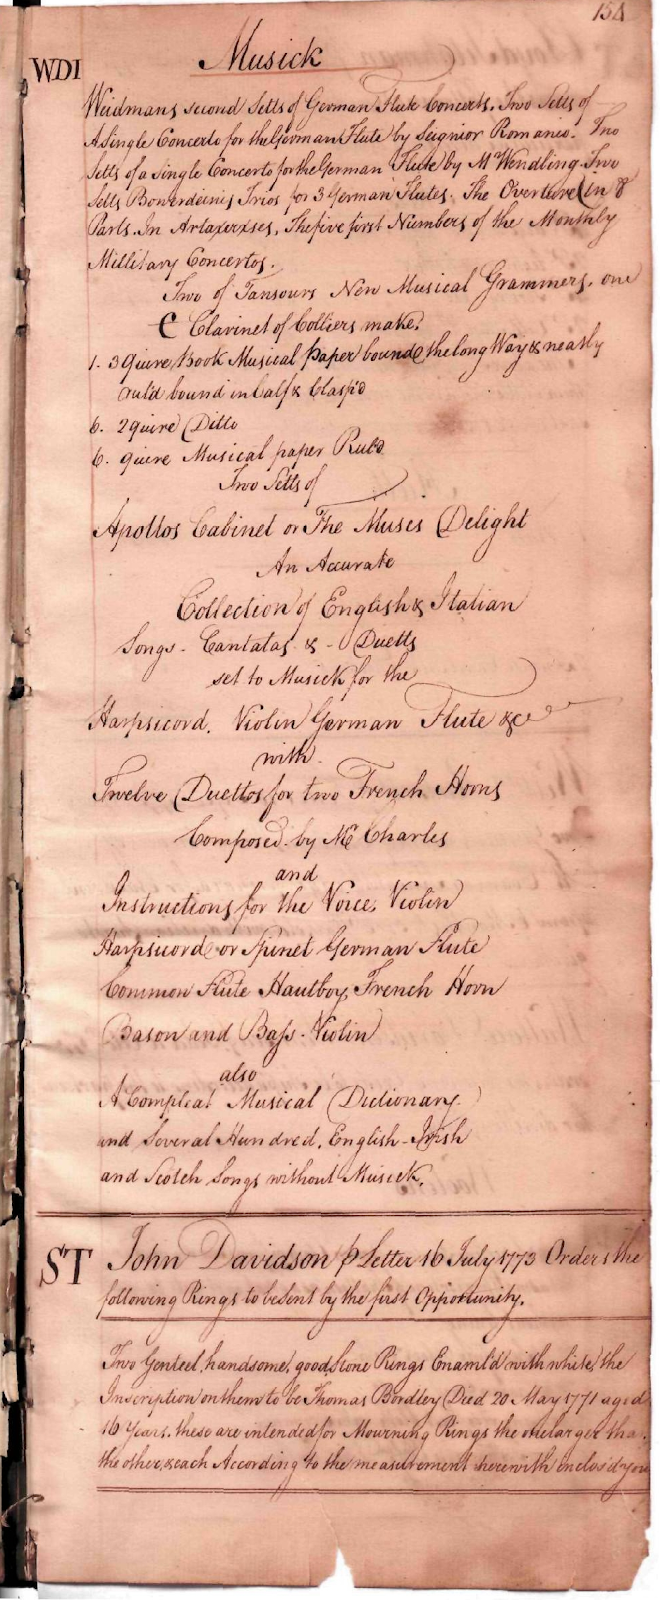 154
WDI
Musick
Weidmans second Setts of German Flute Concerts. Two Setts of
A Single Concerto for the German Flute by Seignior Romanio. Two
Setts of a Single Concerto for the German Flute by Mr Wendling. Two
Setts Bonerdeinis Trios for 3 German Flutes. The Overture (in 8
Parts. In Artaxerxses, The five first Numbers of the Monthly
Millitary Concertos.
Two of Tansours New Musical Grammers, one
C Clarinet of Colliers make.
1. 3 Quire Book Musical Paper bound the long Way & neatly
rul'd bound in Calf & Clasp'd
6. 2 quire Ditto
6. quire Musical paper Rul'd
Two Setts of
Apollos Cabinet or The Muses Delight
An Accurate
Collection of English & Italian
Songs - Cantatas & - Duetts
set to Musick for the
Harpsicord. Violin German Flute &c
with
Twelve Duettos for two French Horns
Composed by Mr Charles
and
Instructions for the Voice, Violin
Harpsicord or Spinet German Flute
Common Flute Hautboy, French Horn
Bason and Bass-Violin
also
A Compleat Musical Dictionary
and Several Hundred, English - Irish
and Scotch Songs without Musick.
ST John Davidson p Letter 16 July 1773 Orders the
following Rings to be sent by the first Opportunity.
Two Genteel, handsome, good Stone Rings Enaml'd with white, the
Inscription on them to be Thomas Bordley Died 20 May 1771 aged
16 Years. these are intended for Mourning Rings the one larger tha
the other, & each According to the measurement herewith enclos'd you